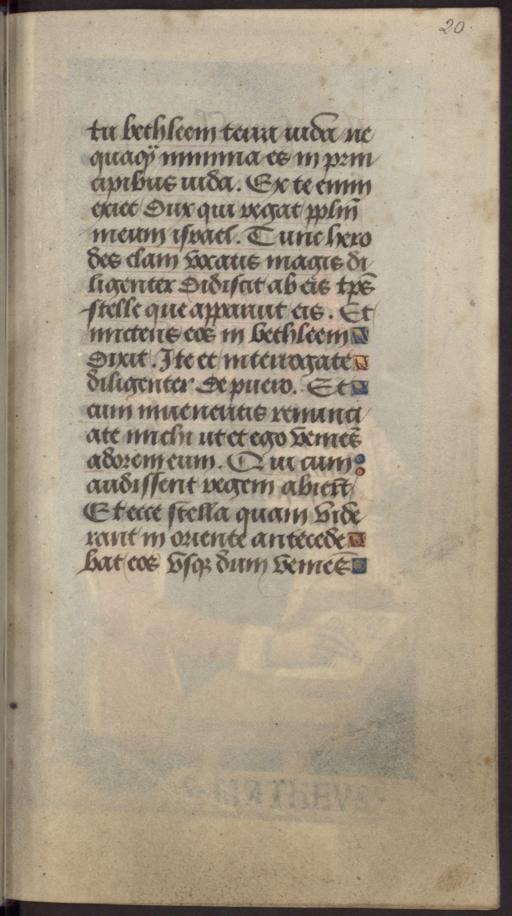 20.
tu bethleem terra iuda ne
quaq̃ minima es in prin
cipibus iuda. Ex te enim
exiet dux qui regat pplm̃
meum israel. Tunc hero
des clam vocatis magis di
ligenter didiscit ab eis tp̃s
stelle que apparuit eis. Et
mictens eos in bethleem
dixit. Ite et interrogate
diligenter de puero. Et
cum inveneritis renunci
ate michi ut et ego veniẽs
adorem eum. Qui cum
audissent regem abiert̃
Et ecce stella quam vide
rant in oriente antecede
bat eos vsq; dum veniẽs